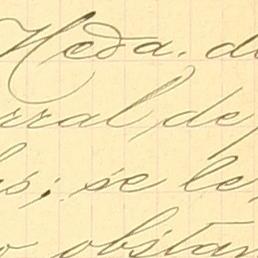 Heda. d
rral, de
s; se le
o obstan